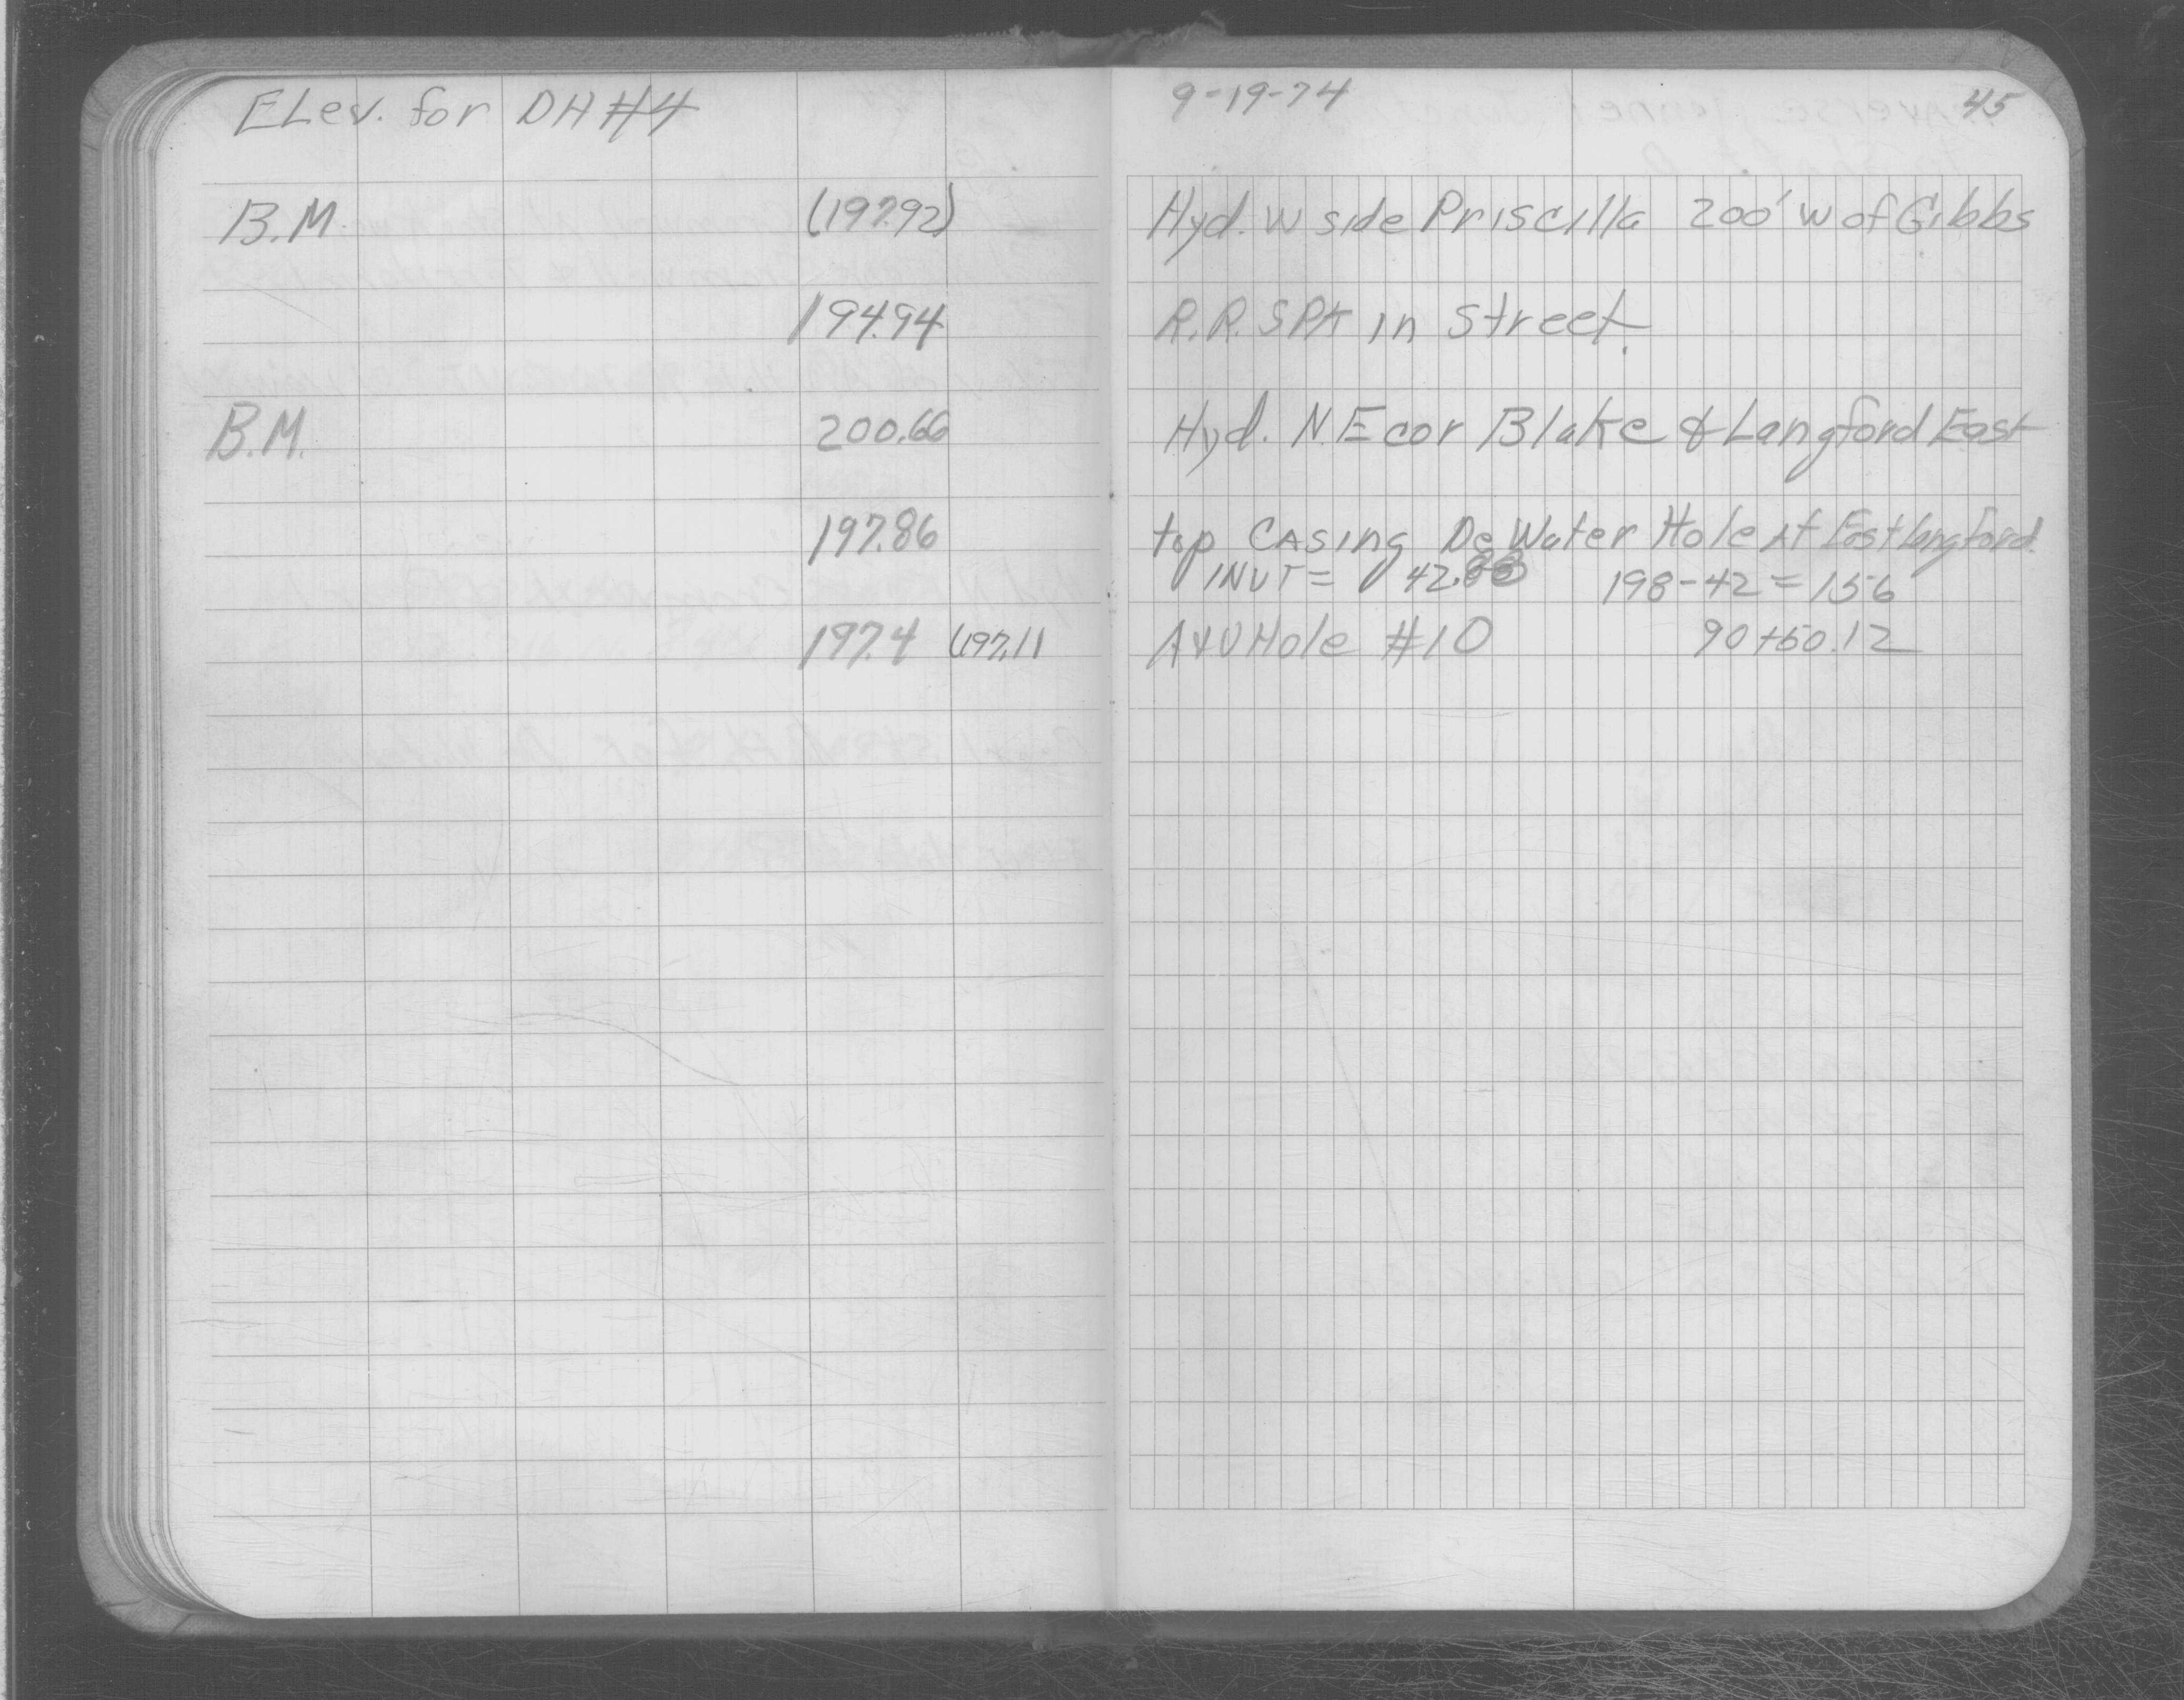 ELev. for DH #4
9-19-74
45
B.M. (197.92) Hyd. W side Priscilla 200' W of Gibbs
194.94 R.R. SPK in Street.
B.M. 200.66 Hyd. N.E cor Blake & Langford East
197.86 top CASing De Water Hole At East Langford.
INVT = 42.88 198-42 = 156
197.4 (197.11 A+U Hole #10 90+50.12